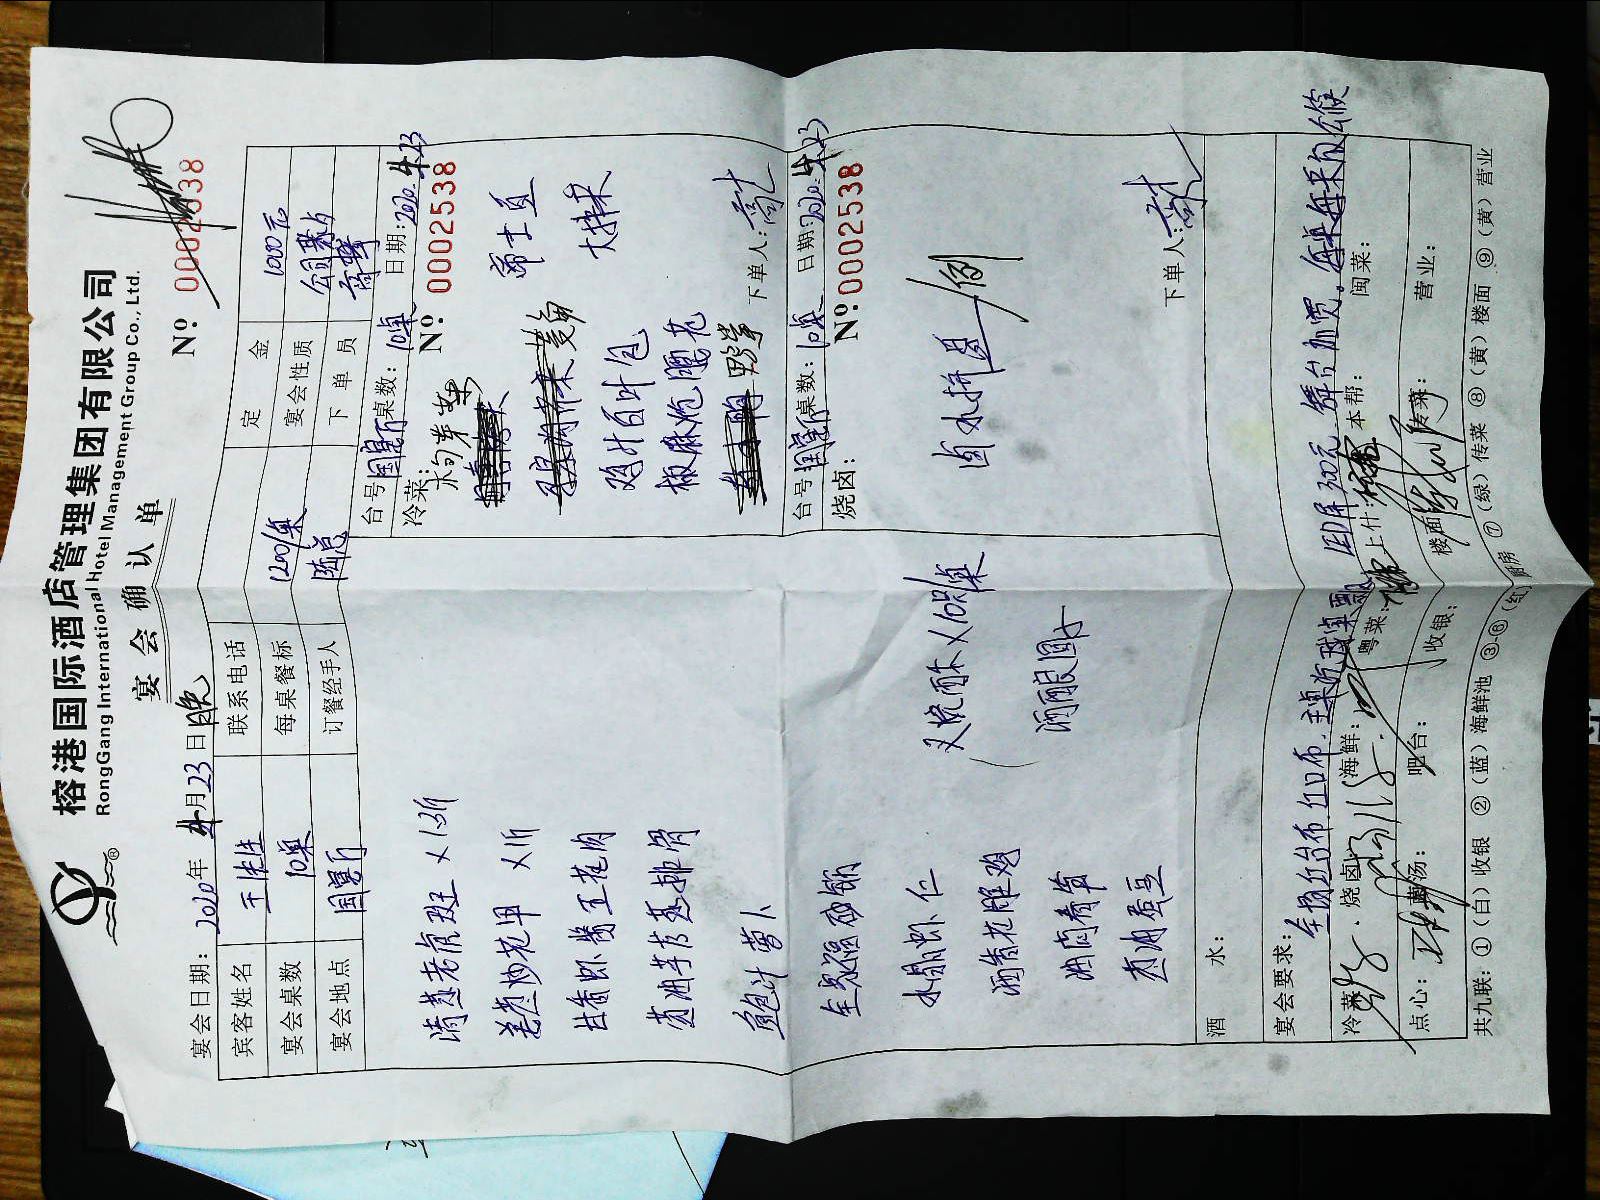 榕港国际酒店管理集团有限公司
RongGang International Hotel Management Group Co., Ltd.
宴会确认单
宴会日期：2020年4月23日晚
Nº: 0002538
宾客姓名 王先生 联系电话 定金 1000元
宴会桌数 10桌 每桌餐标 1200/桌 宴会性质 公司聚会
宴会地点 国宴厅 订餐经手人 陈总 下单员
清蒸老虎斑 X1.3斤
姜葱炒花甲 X1斤
甘香虾酱五花肉
豉油芋艿蒸排骨
鲍汁萝卜
水晶虾仁
酒香花雕鸡
油焖春笋
豉油蛋豆
叉烧酥X10只/桌
酒酿圆子
台号 国宴厅 桌数：10桌 日期：2020.4.23
冷菜：
Nº: 0002538
鸡汁百叶包
椒麻炝腰花
大拌菜
下单人：
台号 国宴厅 桌数：10桌 日期：2020.4.23
烧卤：
Nº: 0002538
卤水拼盘/例
下单人：
酒水：
宴会要求：全场红台布红口布. LED屏500元
冷菜： 烧卤： 海鲜： 粤菜： 上什： 本帮： 闽菜：
点心： 炖汤： 吧台： 收银： 楼面： 传菜： 营业：
共九联：①（白）收银 ②（蓝）海鲜池 ③-⑥（红）厨房 ⑦（绿）传菜 ⑧（黄）楼面 ⑨（黄）营业